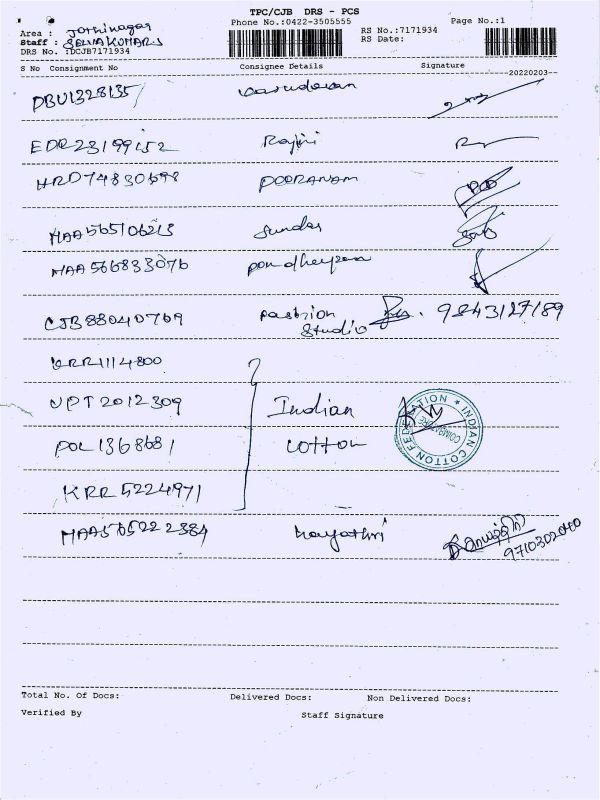 TPC/CJB DRS - PCS
Phone No.:0422-3505555 Page No.:1
Area : Jothinagar RS No.:7171934
Staff : SELVAKUMAR.S RS Date:
DRS No. :DCJB7171934
S No Consignment No Consignee Details Signature
--20220203--
PBU1328135 Vasudevan
EDR23199152 Rajini
HRD74830698 POORANAM
MAA565106213 Sundar
MAA566833076
CJB88040769 Fashion Studio 9843127189
KRR1114800
UPT2012309 Indian
POL1368681 Cotton
INDIAN COTTON FEDERATION
COIMBATORE
KRR5224971
MAA565222384 Gayathri காயத்திரி
9710302040
Total No. Of Docs: Delivered Docs: Non Delivered Docs:
Verified By Staff Signature